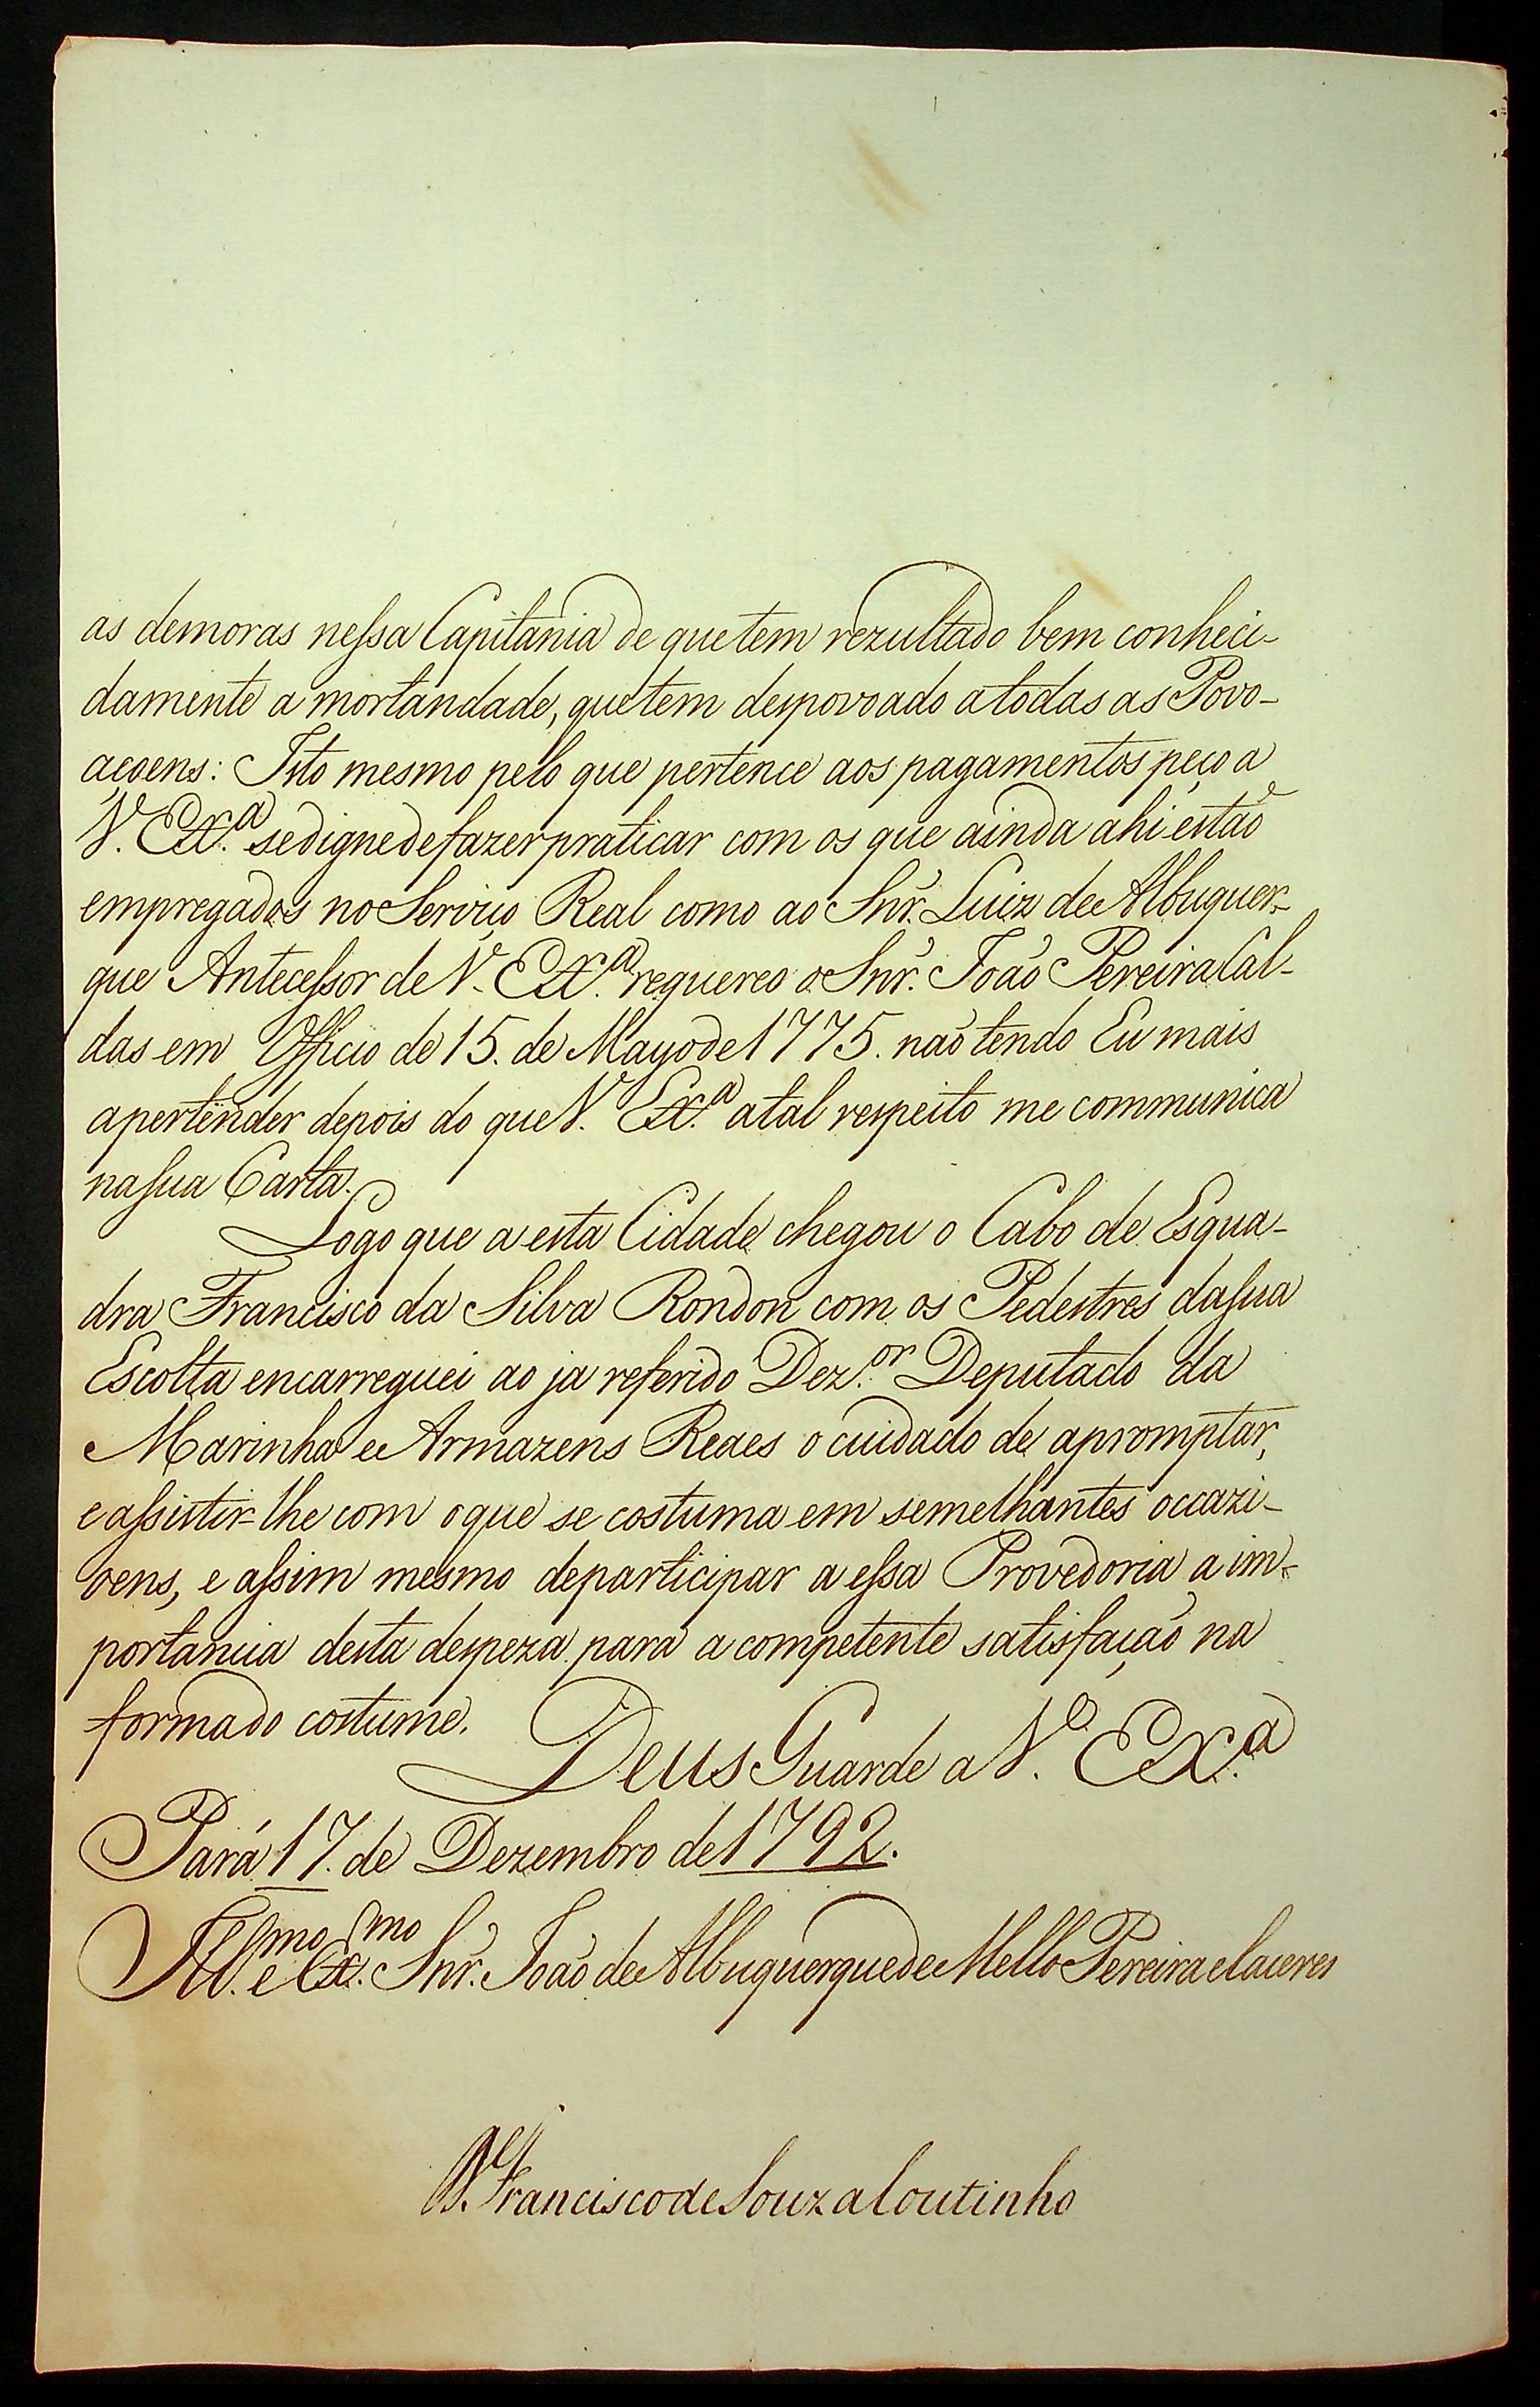 as demoras nessa Capitania de que tem rezultado bem conheci-
damente a mortandade, que tem despovoado a todas as Povo-
açoens: Isto mesmo pelo que pertence aos pagamentos peço a
V. Ex.ª se digne de fazer praticar com os que ainda ahi estaõ
empregados no Serviço Real como ao Snr. Luiz de Albuquer-
que Antecessor de V. Ex.ª requereo o Snr. Joaõ Pereira Cal-
das em Officio de 15. de Mayo de 1775. naõ tendo Eu mais
apertender depois do que V. Ex.ª a tal respeito me communica
na sua Carta.
Logo que a esta Cidade chegou o Cabo de Esqua-
dra Francisco da Silva Rondon com os Pedestres da sua
Escolta encarreguei ao ja referido Dez.or Deputado da
Marinha e Armazens Reaes o cuidado de apromptar,
e assistir-lhe com o que se costuma em semelhantes occazi-
oens, e assim mesmo departicipar a essa Provedoria a im-
portancia desta despeza para a competente satisfaçaõ na
forma do costume. Deus Guarde a V. Ex.ª
Pará 17. de Dezembro de 1792.
Ill.mo e Ex.mo Snr. Joaõ de Albuquerque de Mello Pereira e Caceres
D. Francisco de Souza Coutinho